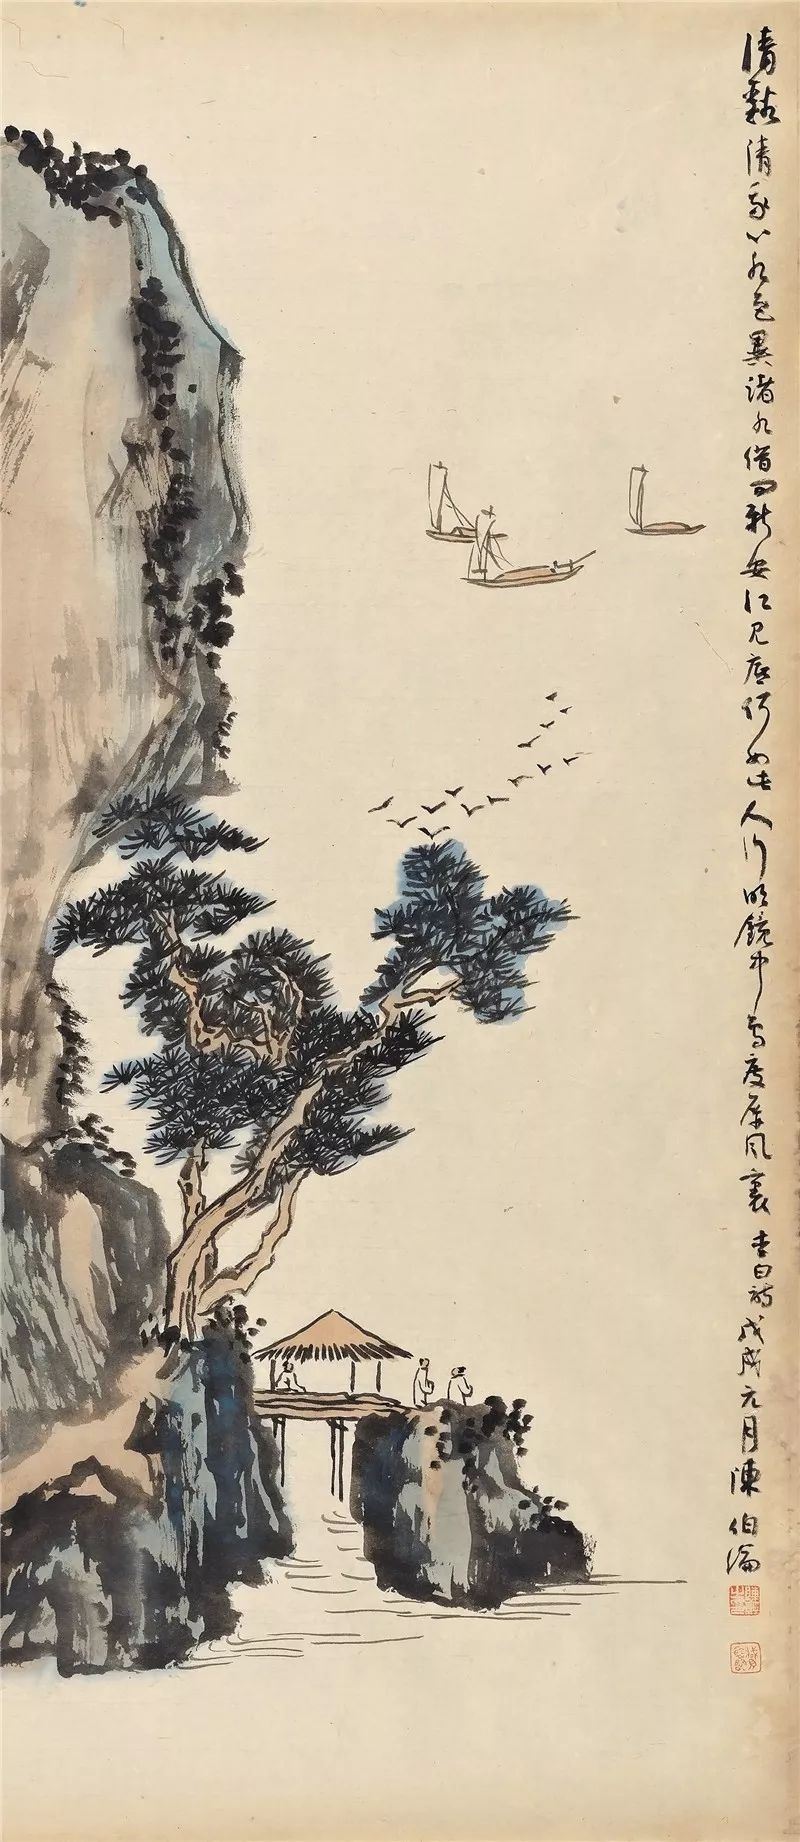 清谿清我心水色異諸水借問新安江見底何如此人行明鏡中鳥度屏風裏李白詩戊戌元月陳伯